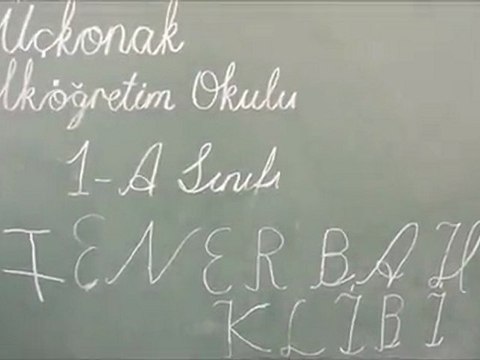 Üçkonak
İlköğretim Okulu
1-A Sınıfı
FENERBAH
KLİBİ